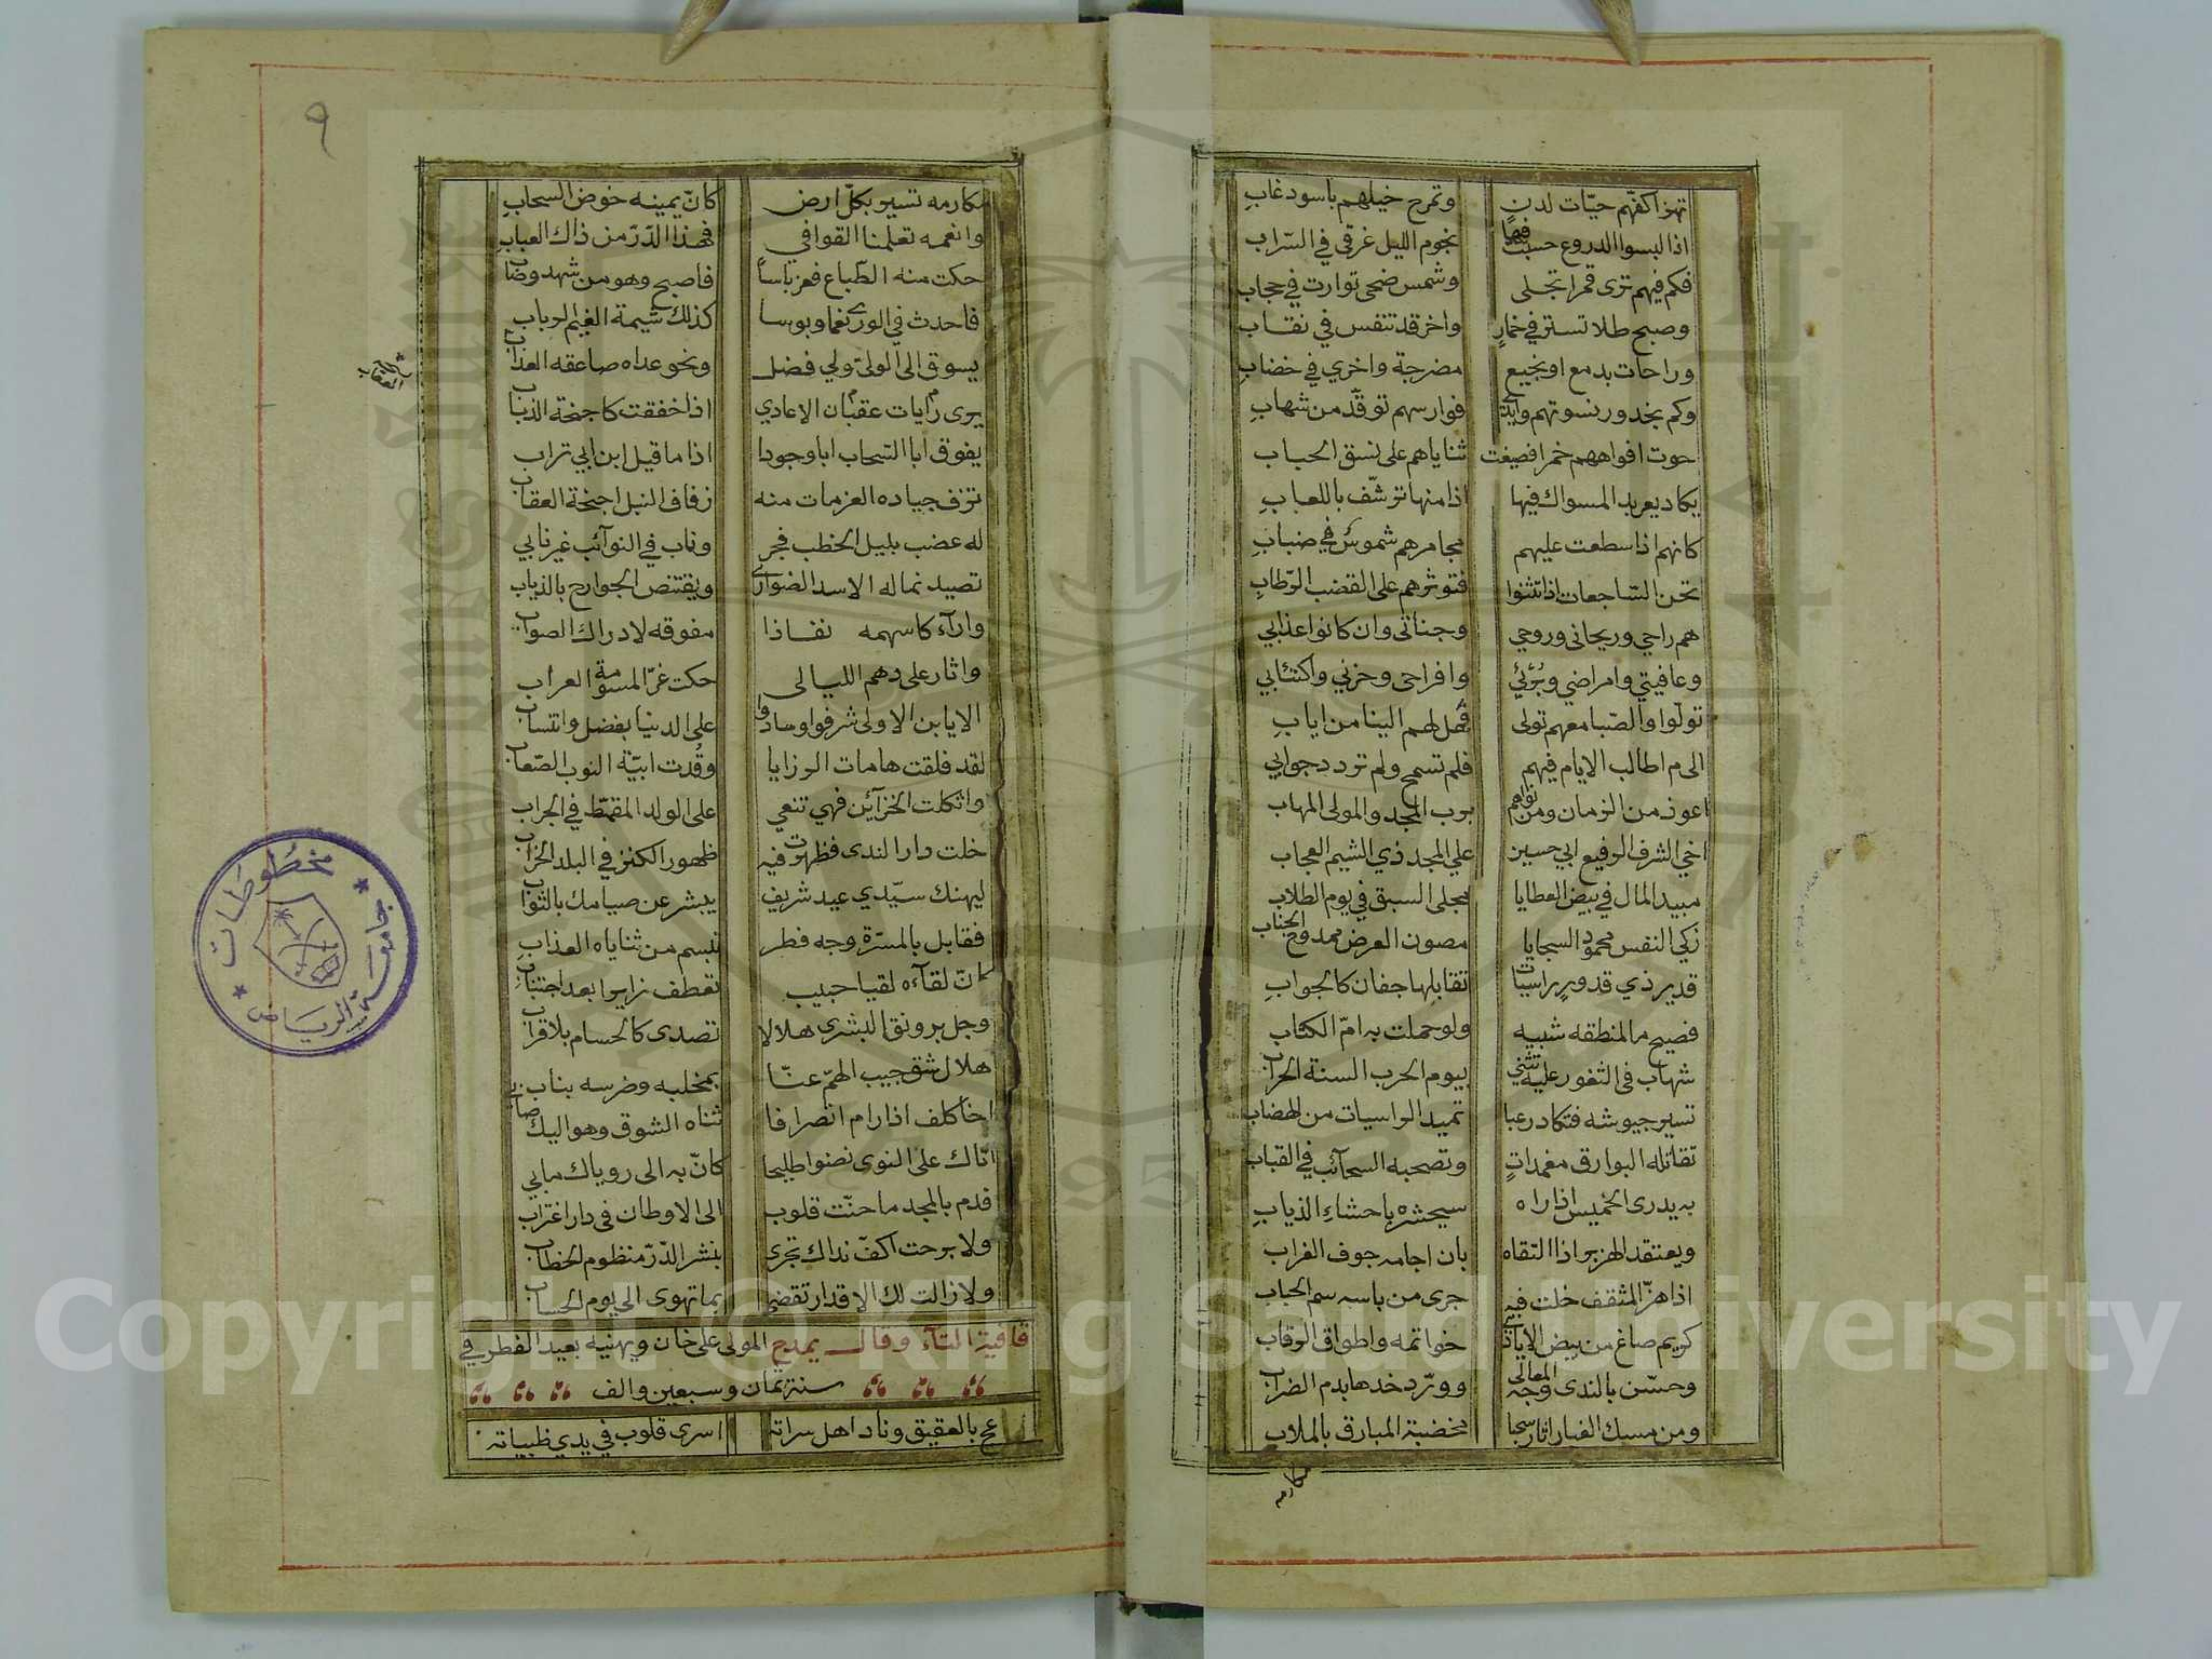 تهز اكفهم حيات لدن وتمرح خيلهم باسود غاب
اذا لبسوا الدروع حسبت فيها نجوم الليل غرقى في السراب
فكم فيهم ترى قمرا تجلى وشمس ضحى توارت في حجاب
وصبح طلا تستر في خمار واخر قد تنفس في نقاب
وراحات بدمع او نجيع مضرجة واخرى في خضاب
وكم بخدور نسوتهم وايدي فوارسهم توقد من شهاب
حوت افواههم خمرا فصيغت ثناياهم على نسق الحباب
يكاد يعربد المسواك فيها اذا منها ترشف باللعاب
كانهم اذا سطعت عليهم مجامرهم شموس في ضباب
تحن الساجعات اذا تثنوا فتوثرهم على القضب الرطاب
هم راحي وريحاني وروحي وجناتي وان كانوا عذابي
وعافيتي وامراضي وبرئي وافراحي وحزني واكتئابي
تولوا والصبا معهم تولى فهل لهم الينا من اياب
الى م اطالب الايام فيهم فلم تسمح ولم تردد جوابي
اعوذ من الزمان ومن نواهم برب المجد والمولى المهاب
اخي الشرف الرفيع ابي حسين علي المجد ذي الشيم العجاب
مبيد المال في بيض العطايا مجلى السبق في يوم الطلاب
زكي النفس محمود السجايا مصون العرض ممدوح الجناب
قدير ذي قدور راسيات تقابلها جفان كالجواب
فصيح ما لمنطقه شبيه ولو حملت به ام الكتاب
شهاب في الثغور عليه تثني بيوم الحرب السنة الحراب
تسير جيوشه فتكاد رعبا تميد الراسيات من الهضاب
تقاتله البوارق مغمدات وتصحبه السحائب في القباب
به يدرى الخميس اذا راه سيحشره باحشاء الذياب
ويعتقد الهزبر اذا التقاه بان اجامه جوف الغراب
اذا هز المثقف خلت فيه جرى من باسه سم الحباب
كريم صاغ من بيض الايادي خواتمه واطواق الرقاب
وحسن بالندى وجه المعالي وورد خدها بدم الضراب
ومن مسك الغبار اثار سحبا مخضبة المبارق بالملاب
مكارمه
٩
مكارمه تسير بكل ارض كان يمينه خوض السحاب
وانعمه تعلمنا القوافي فهذا الدر من ذاك العباب
حكت منه الطباع فعز باسا فاصبح وهو من شهد وصاب
فاحدث في الورى نعما وبوسا كذلك شيمة الغيم الرباب
يسوق الى الولى ولي فضل ونحو عداه صاعقه العذاب
يرى رايات عقبان الاعادي اذا خفقت كاجنحة الذباب
يفوق ابا السحاب ابا وجودا اذا ما قيل ابن ابي تراب
تزف جياده العزمات منه زفاف النبل اجنحة العقاب
له عضب بليل الخطب فجر وناب في النوآئب غير نابي
تصيد نماله الاسد الضوارى ويقتنص الجوارح بالذباب
وارآء كاسهمه نفاذا مفوقه لادراك الصواب
واثار على دهم الليالى حكت غر المسومة العراب
الا يابن الاولى شرفوا وسادوا على الدنيا بفضل وانتساب
لقد فلقت هامات الرزايا وقدت ابية النوب الصعاب
واثكلت الخزآئن فهي تنعي على الولد المقمط في الجراب
خلت دار الندى فظهرت فيه ظهور الكنز في البلد الخراب
ليهنك سيدي عيد شريف يبشر عن صيامك بالثواب
فقابل بالمسرة وجه فطر تبسم من ثناياه العذاب
كان لقآءه لقيا حبيب تعطف زايرا بعد اجتناب
وجل برونق البشرى هلالا تصدى كالحسام بلا قراب
هلال شق جيب الهم عنا بمخلبه وضرسه بناب
اخا كلف اذا رام انصرافا ثناه الشوق وهو اليك صابي
اتاك على النوى نضوا طليحا كان به الى روياك مابي
فدم بالمجد ما حنت قلوب الى الاوطان في دار اغتراب
ولا برحت اكف نداك تجرى بنشر الدر منظوم الخطاب
ولا زالت لك الاقدار تقضي بما تهوى الى يوم الحساب
قافية التآء وقال يمدح المولى على خان ويهنيه بعيد الفطر في
سنة ثمان وسبعين والف
عج بالعقيق وناد اهل سراته اسرى قلوب في يدي ظبياته
مخطوطات
جامعة الرياض
Copyright © King Saud University